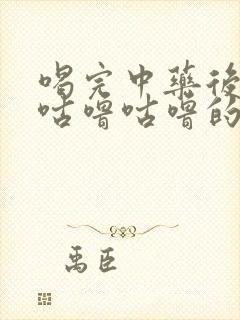 喝完中藥後
咕嚕咕嚕的
禹臣